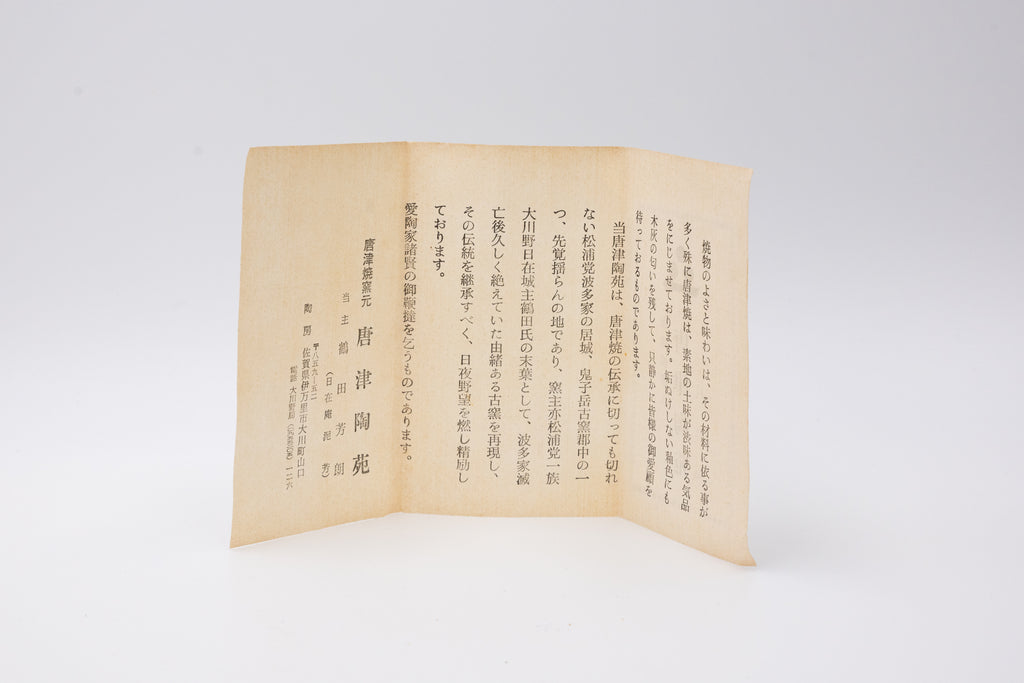 焼物のよさと味わいは、その材料に依る事が
多く殊に唐津焼は、素地の土味が渋味ある気品
をにじませております。垢ぬけしない釉色にも
木灰の匂いを残して、只静かに皆様の御愛顧を
待っておるものであります。
当唐津陶苑は、唐津焼の伝承に切っても切れ
ない松浦党波多家の居城、鬼子岳古窯郡中の一
つ、先覚揺らんの地であり、窯主亦松浦党一族
大川野日在城主鶴田氏の末葉として、波多家滅
亡後久しく絶えていた由緒ある古窯を再現し、
その伝統を継承すべく、日夜野望を燃し精励し
ております。
愛陶家諸賢の御鞭撻を乞うものであります。
唐津焼窯元 唐津陶苑
当主 鶴田芳朗
(日在庵泥芳)
〒八五九―五二
陶房 佐賀県伊万里市大川町山口
電話 大川野局 一二六